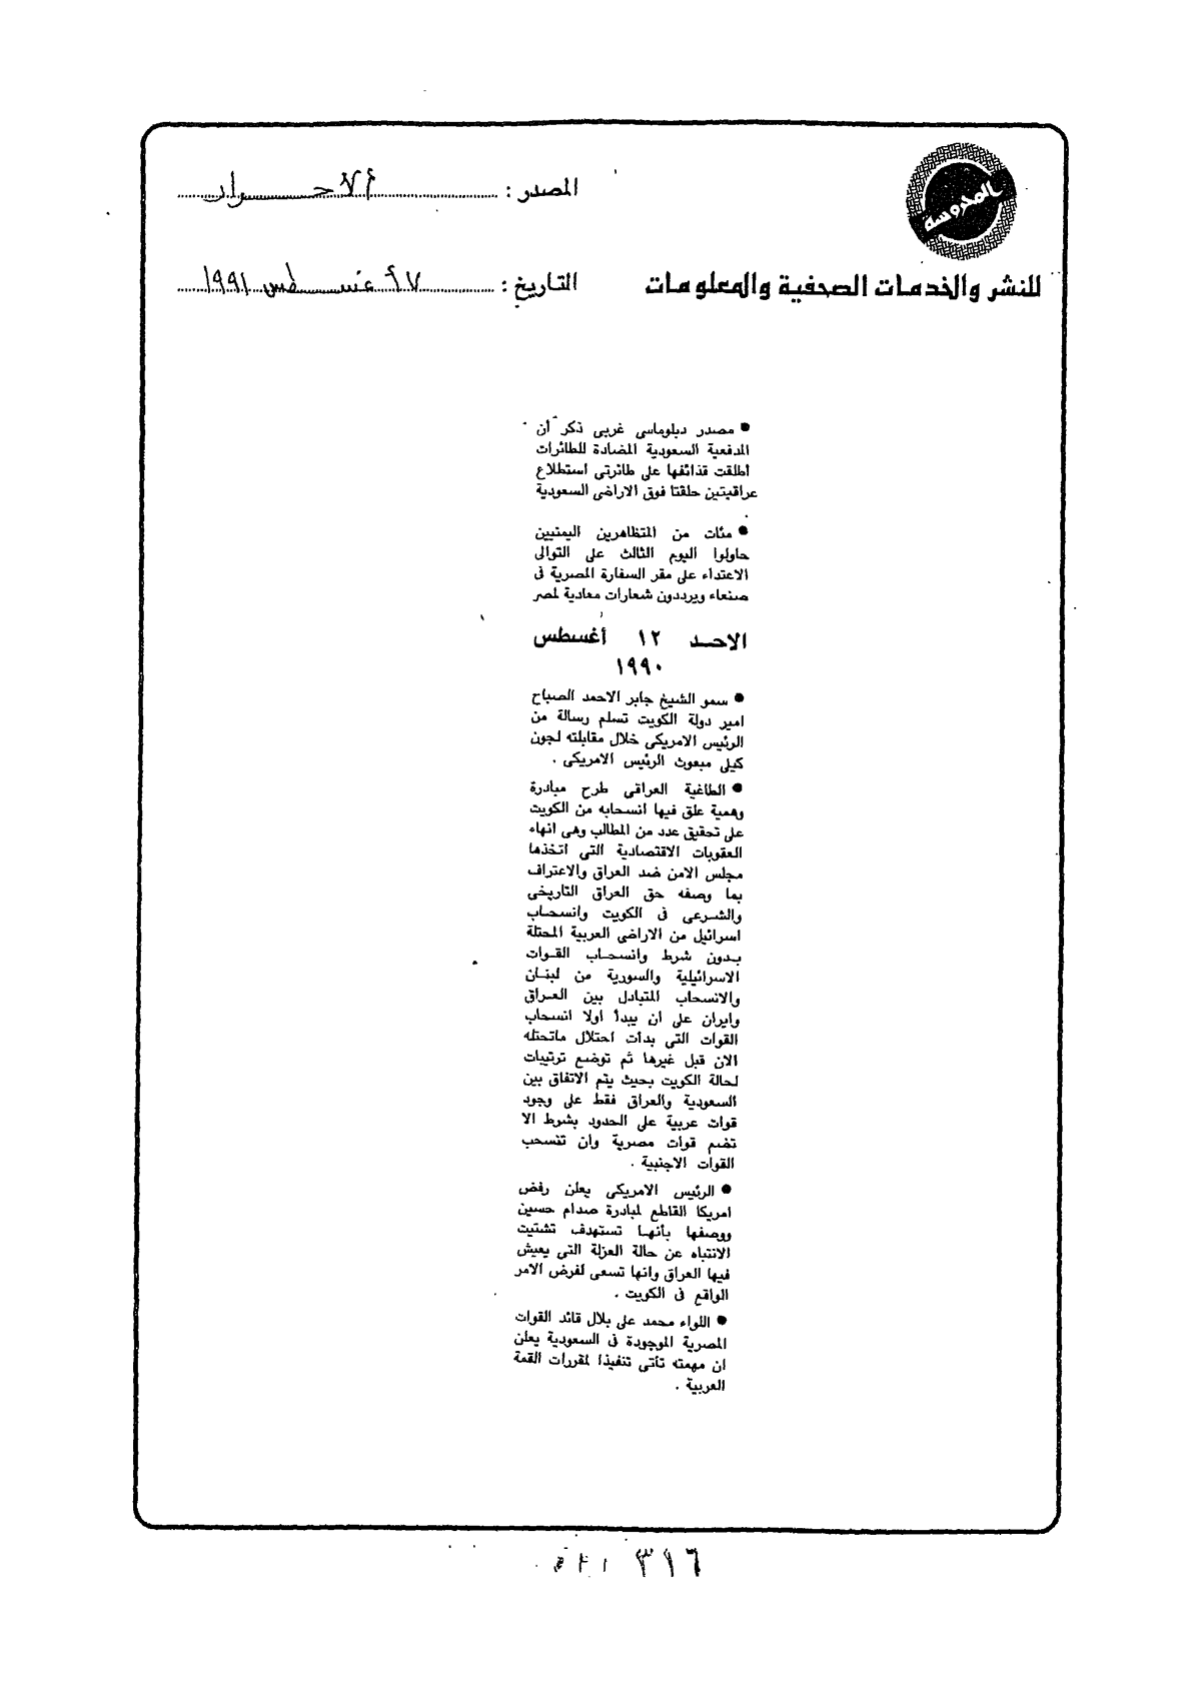 المحروسة
للنشر والخدمات الصحفية والمعلومات
المصدر : الأحرار
التاريخ : ٢٧ أغسطس ١٩٩١
● مصدر دبلوماسى غربى ذكر أن
المدفعية السعودية المضادة للطائرات
اطلقت قذائفها على طائرتى استطلاع
عراقيتين حلقتا فوق الاراضى السعودية
● مئات من المتظاهرين اليمنيين
حاولوا اليوم الثالث على التوالى
الاعتداء على مقر السفارة المصرية فى
صنعاء ويرددون شعارات معادية لمصر
الاحـد ١٢ أغسطس
١٩٩٠
● سمو الشيخ جابر الاحمد الصباح
امير دولة الكويت تسلم رسالة من
الرئيس الامريكى خلال مقابلته لجون
كيلى مبعوث الرئيس الامريكى .
● الطاغية العراقى طرح مبادرة
وهمية علق فيها انسحابه من الكويت
على تحقيق عدد من المطالب وهى انهاء
العقوبات الاقتصادية التى اتخذها
مجلس الامن ضد العراق والاعتراف
بما وصفه حق العراق التاريخى
والشرعى فى الكويت وانسحاب
اسرائيل من الاراضى العربية المحتلة
بدون شرط وانسحاب القوات
الاسرائيلية والسورية من لبنان
والانسحاب المتبادل بين العراق
وايران على ان يبدأ اولا انسحاب
القوات التى بدأت احتلال ماتحتله
الان قبل غيرها ثم توضع ترتيبات
لحالة الكويت بحيث يتم الاتفاق بين
السعودية والعراق فقط على وجود
قوات عربية على الحدود بشرط الا
تضم قوات مصرية وان تنسحب
القوات الاجنبية .
● الرئيس الامريكى يعلن رفض
امريكا القاطع لمبادرة صدام حسين
ووصفها بأنها تستهدف تشتيت
الانتباه عن حالة العزلة التى يعيش
فيها العراق وانها تسعى لفرض الامر
الواقع فى الكويت .
● اللواء محمد على بلال قائد القوات
المصرية الموجودة فى السعودية يعلن
ان مهمته تأتى تنفيذا لمقررات القمة
العربية .
٣١٦